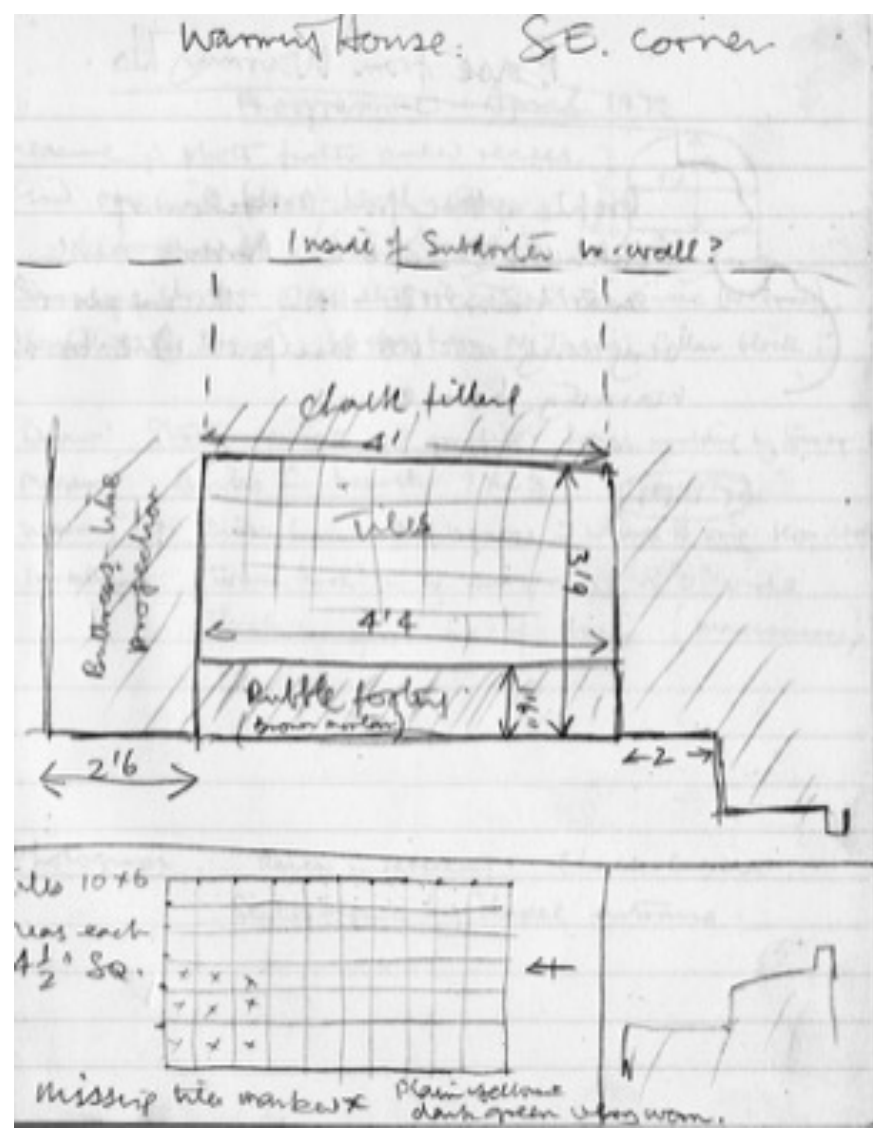 Warming House: S.E. Corner
Inside of Subdorter W. wall?
chalk filled
4'
Tiles
3'9
4'4
Buttress-like
projection
Rubble footing
(Brown mortar)
2'6
2
10 x 6
each
4½" SQ.
missing tiles marked x
Plain yellow
dark green very worn.